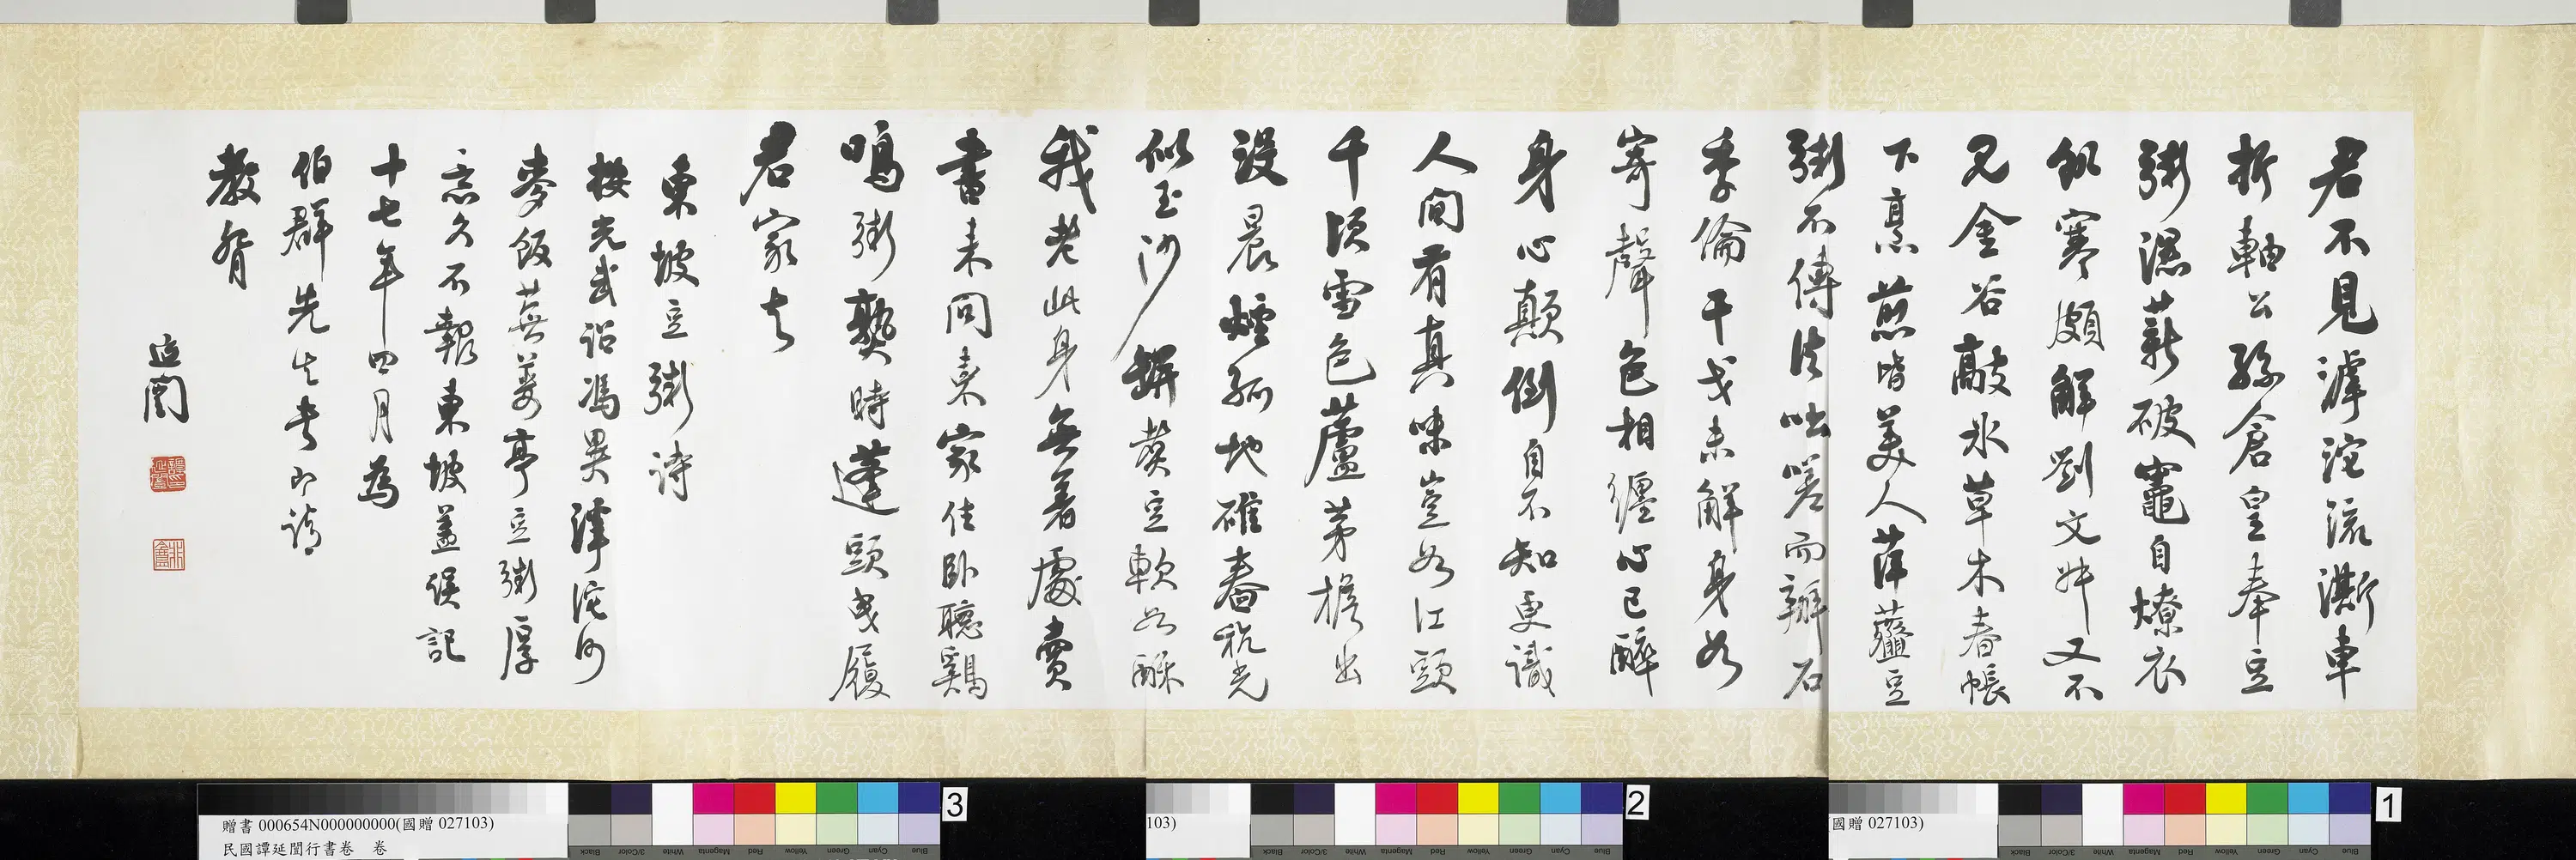 君不見滹沱流澌車
折軸公孫倉皇奉豆
粥濕薪破竈自燎衣
飢寒頗解劉文叔又不
見金谷敲冰草木春帳
下烹煎皆美人萍虀豆
粥不傳法咄嗟而辦石
季倫干戈未解身如
寄聲色相纏心已醉
身心顛倒自不知更識
人間有真味豈如江頭
千頃雪色蘆茅檐出
沒晨煙孤地碓舂秔光
似玉沙缾煑豆軟如酥
我老此身無著處賣
書來問東家住臥聽鷄
鳴粥熟時蓬頭曳履
君家去
東坡豆粥詩
按光武詔馮異滹沱河
麥飯蕪蔞亭豆粥厚
意久不報東坡蓋誤記
十七年四月為
伯群先生書即請
教督
延闓
贈書 000654N000000000(國贈 027103)
民國譚延闓行書卷 卷
3
103)
2
國贈 027103)
1
Black 3/Color White Magenta Red Yellow Green Cyan Blue
Black 3/Color White Magenta Red Yellow Green Cyan Blue
Black 3/Color White Magenta Red Yellow Green Cyan Blue